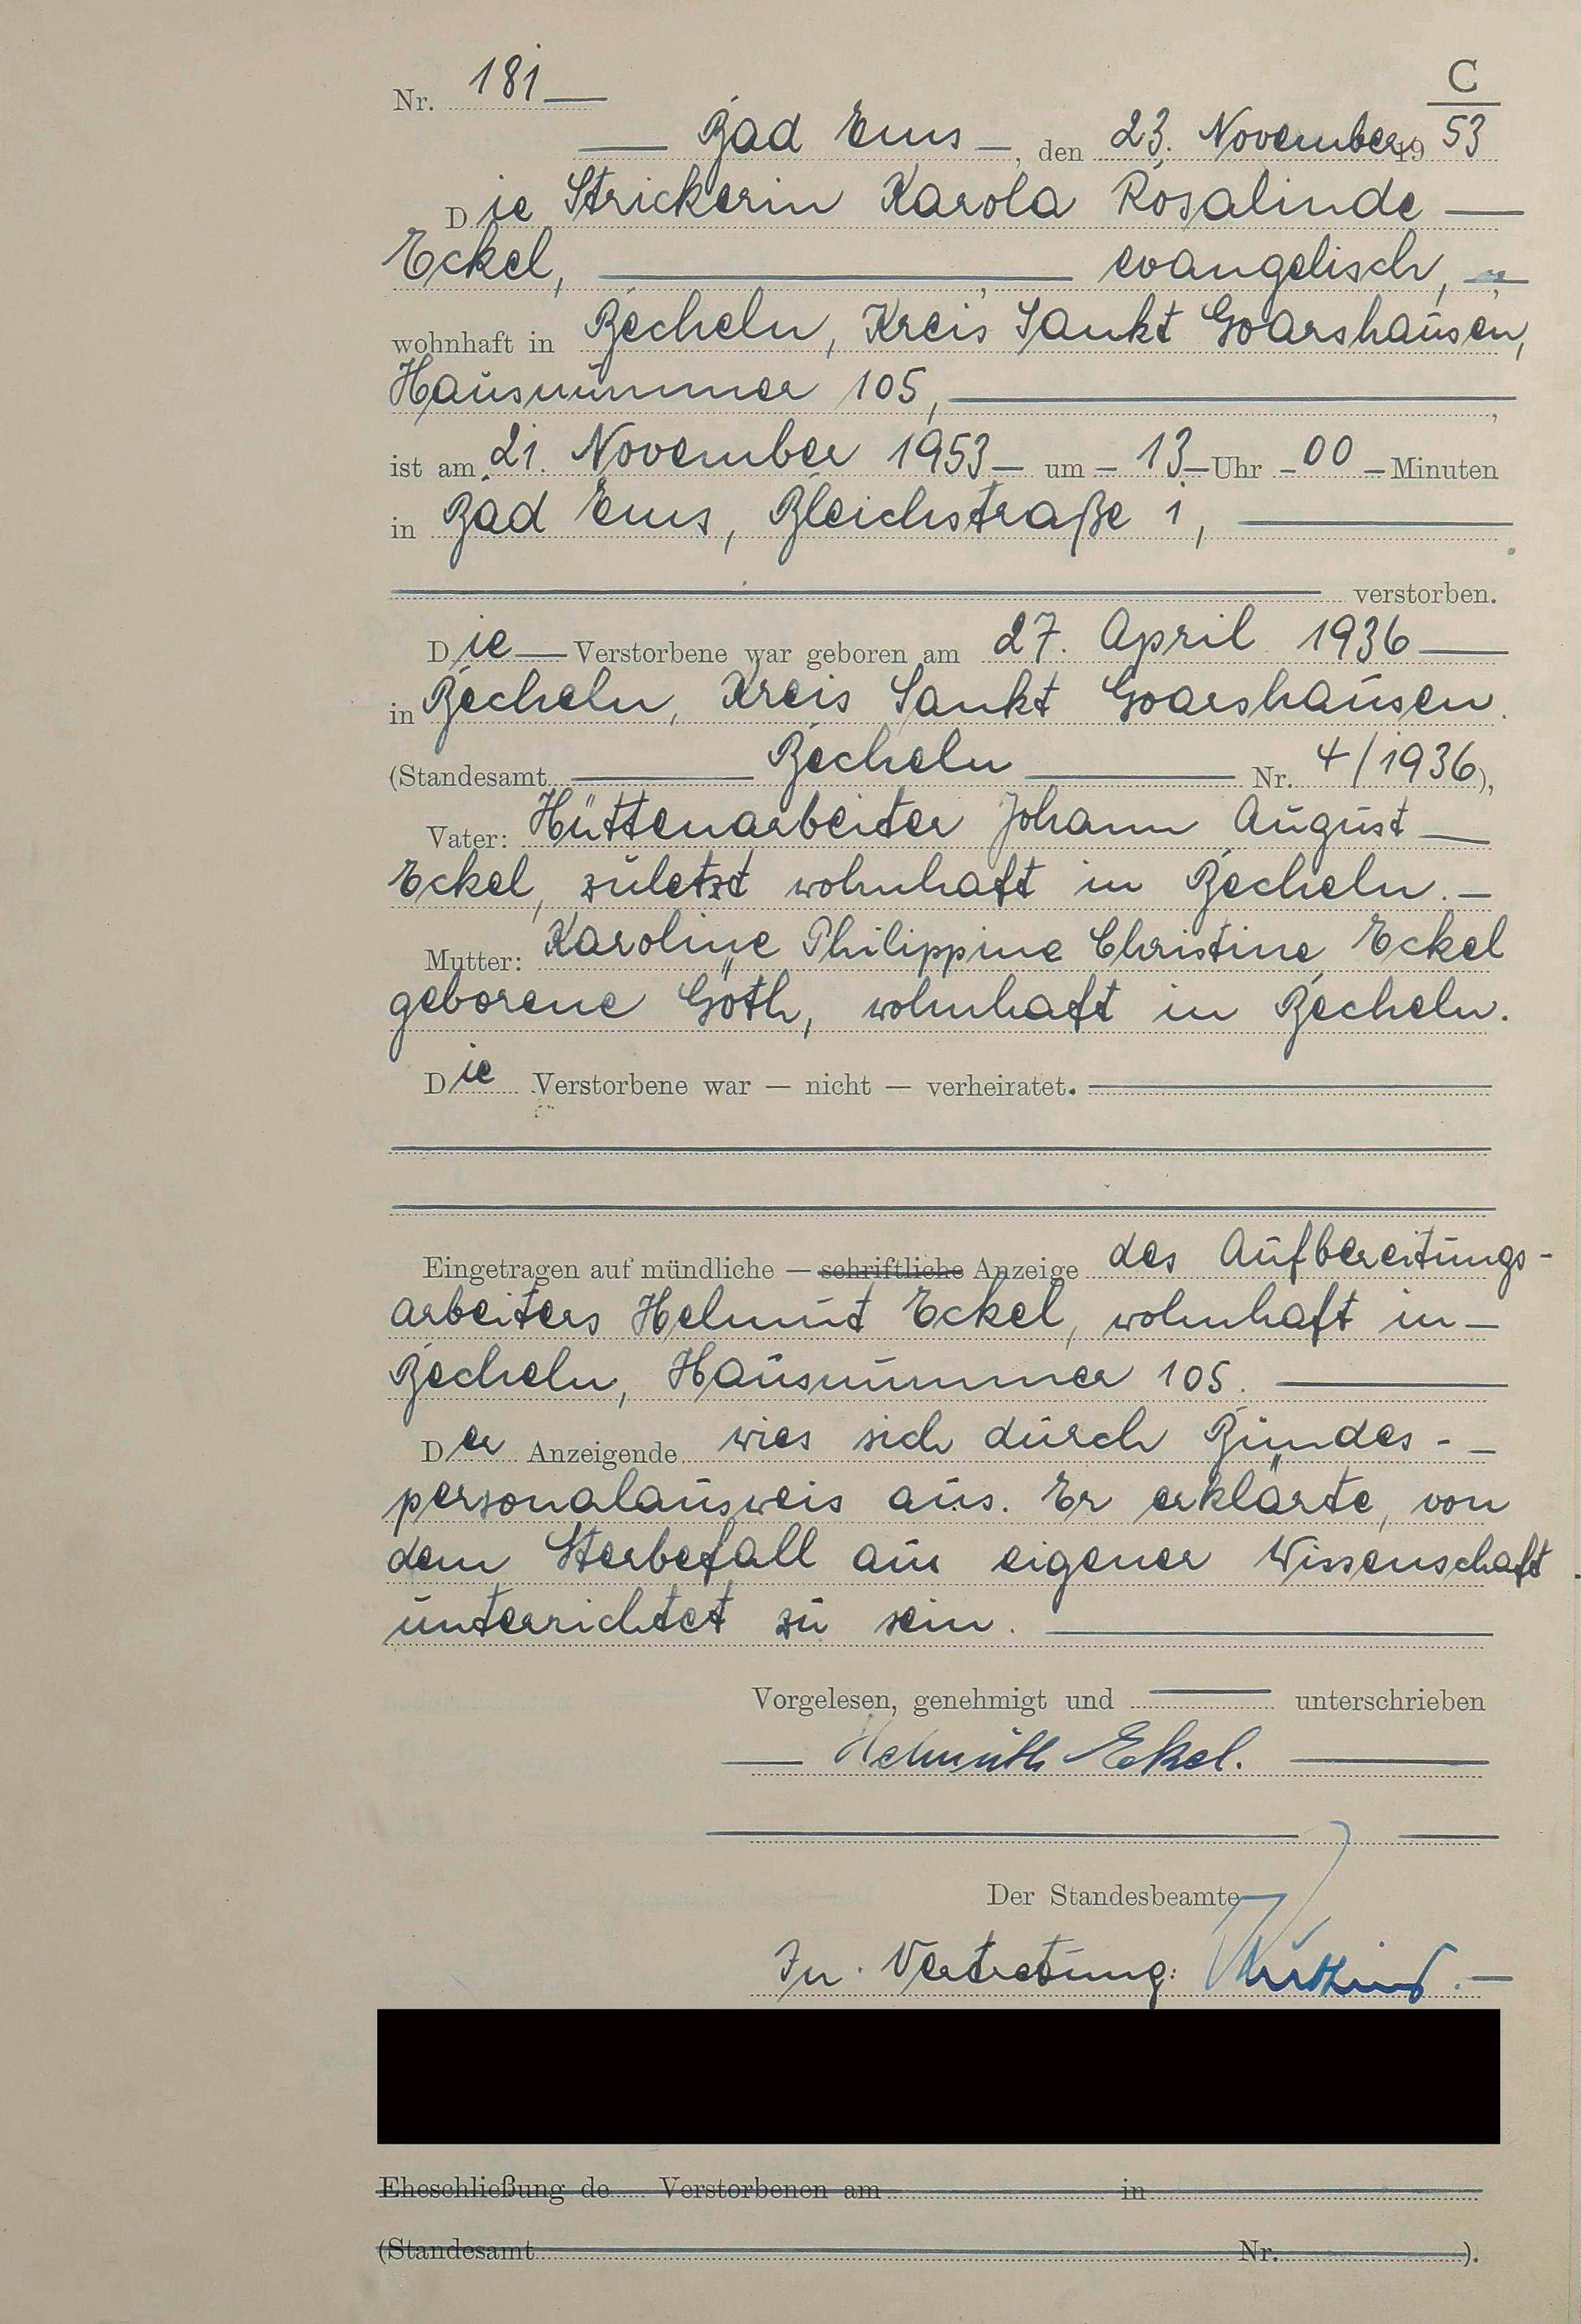 Nr. 181
C
Bad Ems, den 23. November 19 53
Die Strickerin Karola Rosalinde
Eckel, evangelisch,
wohnhaft in Becheln, Kreis Sankt Goarshausen,
Hausnummer 105,
ist am 21. November 1953 um 13 Uhr 00 Minuten
in Bad Ems, Bleichstraße 1,
verstorben.
Die Verstorbene war geboren am 27. April 1936
in Becheln, Kreis Sankt Goarshausen.
(Standesamt Becheln Nr. 4/1936),
Vater: Hüttenarbeiter Johann August
Eckel, zuletzt wohnhaft in Becheln.
Mutter: Karoline Philippine Christine Eckel
geborene Göth, wohnhaft in Becheln.
Die Verstorbene war — nicht — verheiratet.
Eingetragen auf mündliche — schriftliche Anzeige des Aufbereitungs-
arbeiters Helmut Eckel, wohnhaft in
Becheln, Hausnummer 105.
Der Anzeigende wies sich durch Bundes-
personalausweis aus. Er erklärte, von
dem Sterbefall aus eigener Wissenschaft
unterrichtet zu sein.
Vorgelesen, genehmigt und unterschrieben
Helmuth Eckel.
Der Standesbeamte
In Vertretung:
Eheschließung de Verstorbenen am in
(Standesamt Nr. ).